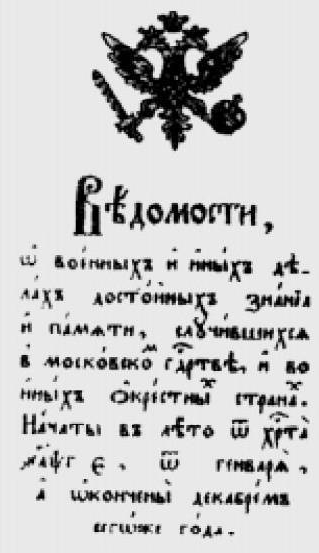 Вѣдомости,
ѡ вое́нныхъ и҆ и҆ны́хъ дѣ-
лахъ досто́йныхъ зна́нїѧ
и҆ па́мѧти, слꙋчи́вшихсѧ
в моско́вскоⷨ гдⷭ҇ртвѣ, и҆ во
и҆́нныхъ ѻ҆кре́стныⷯ страна́ⷯ.
На́чаты въ лѣ́то ѿ хрⷭ҇та̀
҂аѱг є҃, ѿ генварѧ̀,
а ѡ҆ко́нчены декабре́мъ
сегѡ́же го́да.